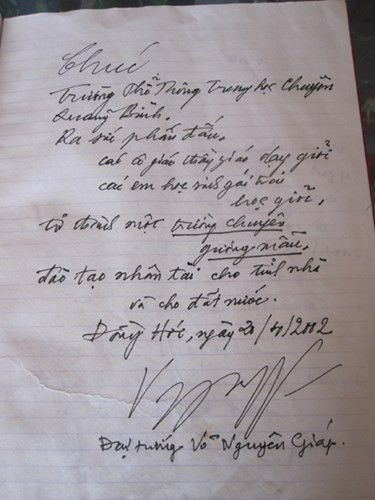 Chúc
Trường Phổ Thông Trung học Chuyên
Quảng Bình.
Ra sức phấn đấu,
các cô giáo thầy giáo dạy giỏi
các em học sinh gái trai
học giỏi,
thành một trường chuyên
gương mẫu,
đào tạo nhân tài cho tỉnh nhà
và cho đất nước.
Đồng Hới, ngày 2002
Đại tướng Võ Nguyên Giáp.